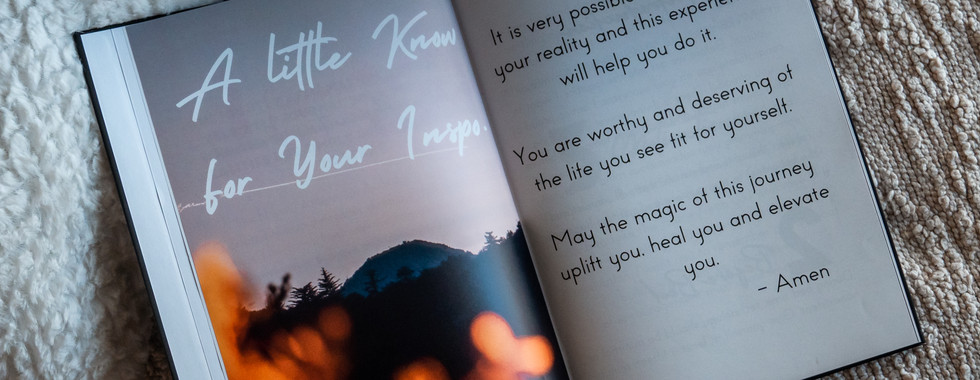 A little Know
for Your Inspo.
It is very possible
your reality and this
will help you do it.
You are worthy and deserving of
the life you see fit for yourself.
May the magic of this journey
uplift you, heal you and elevate
you.
- Amen